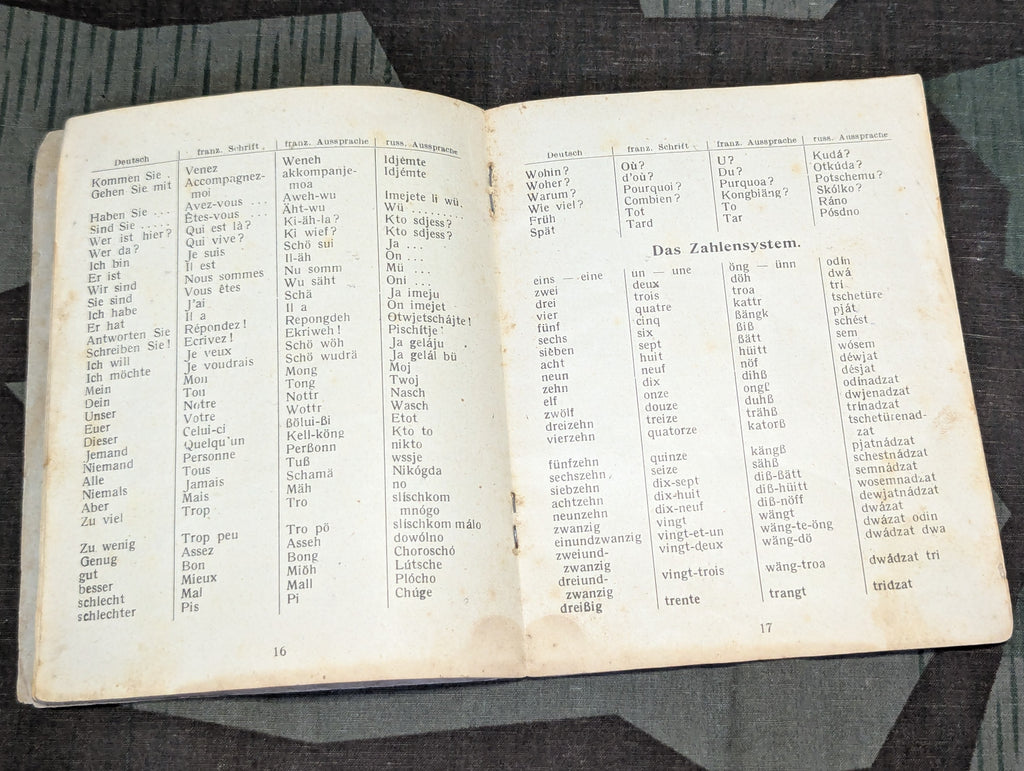 Deutsch franz. Schrift franz. Aussprache russ. Aussprache
Kommen Sie . Venez Weneh Idjémte
Gehen Sie mit Accompagnez- akkompanje- Idjémte
moi moa
Haben Sie ... Avez-vous ... Aweh-wu Imejete li wü.
Sind Sie ..... Êtes-vous ... Äht-wu Wü ........
Wer ist hier? Qui est là? Ki-äh-la? Kto sdjess?
Wer da? Qui vive? Ki wief? Kto sdjess?
Ich bin Je suis Schö sui Ja ...
Er ist Il est Il-äh On ...
Wir sind Nous sommes Nu somm Mü ...
Sie sind Vous êtes Wu säht Oni ...
Ich habe J'ai Schä Ja imeju
Er hat Il a Il a On imejet
Antworten Sie Répondez! Repongdeh Otwjetschájte!
Schreiben Sie! Ecrivez! Ekriweh! Pischítje!
Ich will Je veux Schö wöh Ja geláju
Ich möchte Je voudrais Schö wudrä Ja gelál bü
Mein Mon Mong Moj
Dein Ton Tong Twoj
Unser Notre Nottr Nasch
Euer Votre Wottr Wasch
Dieser Celui-ci ßölui-ßi Etot
Jemand Quelqu'un Kell-köng Kto to
Niemand Personne Perßonn nikto
Alle Tous Tuß wssje
Niemals Jamais Schamä Nikógda
Aber Mais Mäh no
Zu viel Trop Tro slíschkom
mnógo
Zu wenig Trop peu Tro pö slíschkom málo
Genug Assez Asseh dowólno
gut Bon Bong Choroschó
besser Mieux Miöh Lútsche
schlecht Mal Mall Plócho
schlechter Pis Pi Chúge
16
Deutsch franz. Schrift franz. Aussprache russ. Aussprache
Wohin? Où? U? Kudá?
Woher? d'où? Du? Otkúda?
Warum? Pourquoi? Purquoa? Potschemu?
Wie viel? Combien? Kongbiäng? Skólko?
Früh Tot To Ráno
Spät Tard Tar Pósdno
Das Zahlensystem.
eins — eine un — une öng — ünn odín
zwei deux döh dwá
drei trois troa tri
vier quatre kattr tschetüre
fünf cinq ßängk pját
sechs six ßiß schést
sieben sept ßätt sem
acht huit hüitt wósem
neun neuf nöf déwjat
zehn dix dihß désjat
elf onze ongß odínadzat
zwölf douze duhß dwjenadzat
dreizehn treize trähß trínadzat
vierzehn quatorze katorß tschetürenad-
zat
fünfzehn quinze kängß pjatnádzat
sechszehn seize sähß schestnádzat
siebzehn dix-sept diß-ßätt semnádzat
achtzehn dix-huit diß-hüitt wosemnadzat
neunzehn dix-neuf diß-nöff dewjatnádzat
zwanzig vingt wängt dwázat
einundzwanzig vingt-et-un wäng-te-öng dwázat odin
zweiund- vingt-deux wäng-dö dwádzat dwa
zwanzig
dreiund- vingt-trois wäng-troa dwádzat tri
zwanzig
dreißig trente trangt tridzat
17